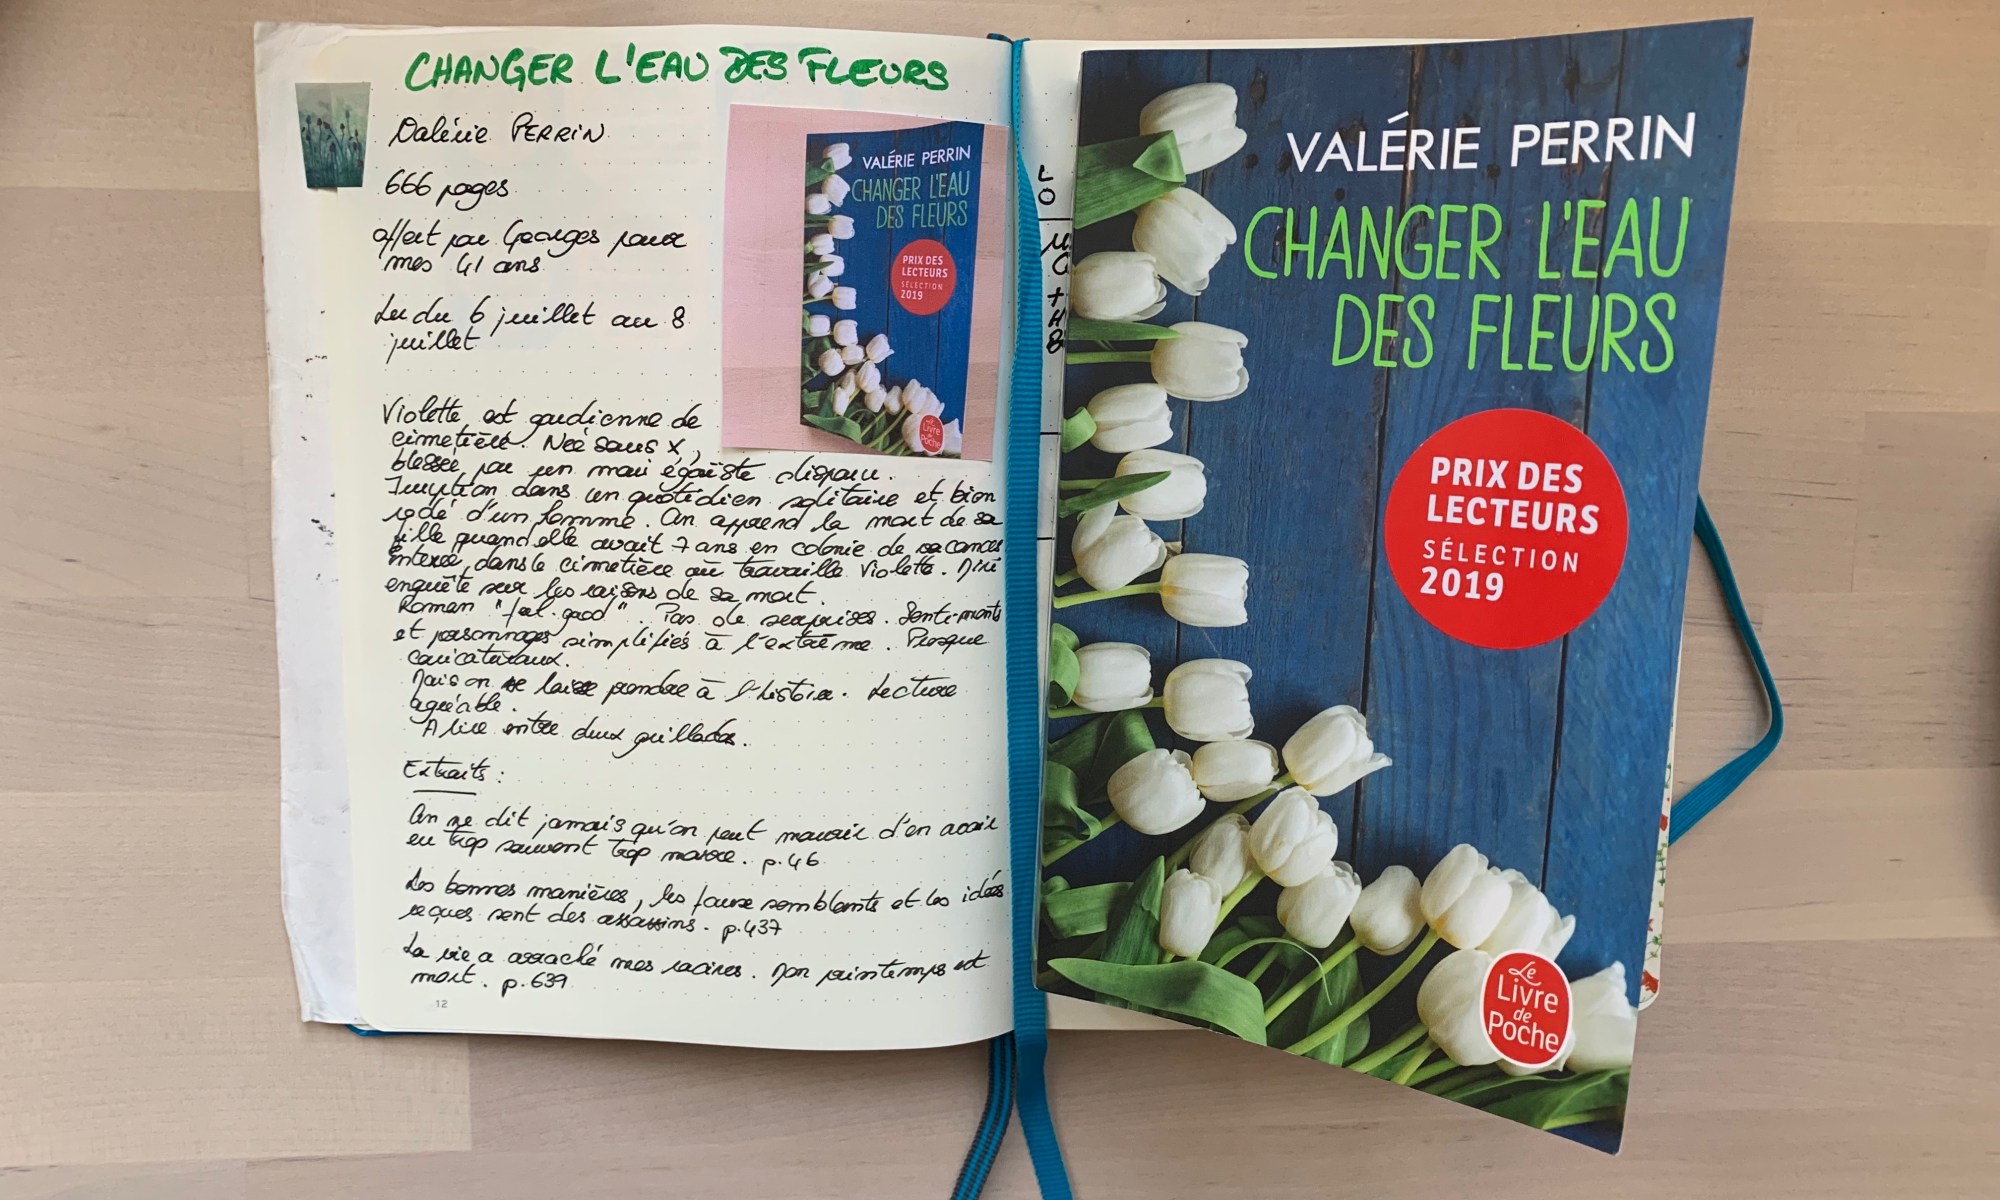 CHANGER L'EAU DES FLEURS
Valérie PERRIN
666 pages
offert par Georges pour
mes 41 ans
Lu du 6 juillet au 8
juillet
Violette est gardienne de
cimetière. Née sous X,
blessée par un mari égoïste disparu.
dans un quotidien solitaire et bien
rodé d'un homme. On apprend la mort de sa
fille quand elle avait 7 ans en colonie de vacances
enterée, dans le cimetière où travaille Violette.
enquête sur les raisons de sa mort.
Roman "feel-good". Pas de surprises. Sentiments
et personnages simplifiés à l'extrême. Presque
caricaturaux.
Mais on se laisse prendre à l'histoire. Lecture
agréable.
A lire entre deux
Extraits :
On ne dit jamais qu'on peut mourir d'en avoir
eu trop souvent trop marre. p.46
Les bonnes manières, les faux semblants et les idées
reçues sont des assassins. p.437
La vie a arraché mes racines. Mon printemps est
mort. p.639
12
VALÉRIE PERRIN
CHANGER L'EAU
DES FLEURS
PRIX DES
LECTEURS
SÉLECTION
2019
Le
Livre
de
Poche
L
O
VALÉRIE PERRIN
CHANGER L'EAU
DES FLEURS
PRIX DES
LECTEURS
SÉLECTION
2019
Le
Livre
de
Poche